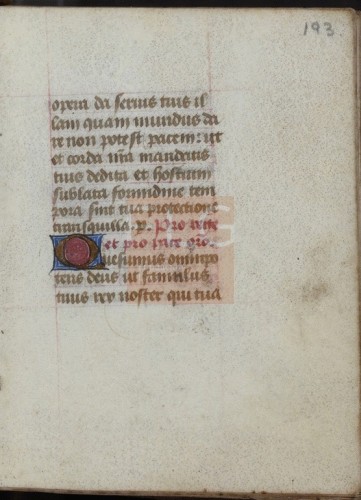 193
opera da servis tuis il
lam quam mundus da
re non potest pacem: ut
et corda nra mandatis
tuis dedita et hostium
sublata formidine tem
pora sint tua protectione
tranquilla. p. Pro rege
et pro pace oro.
Quesumus omnipo
tens deus ut famulus
tuus rex noster qui tua